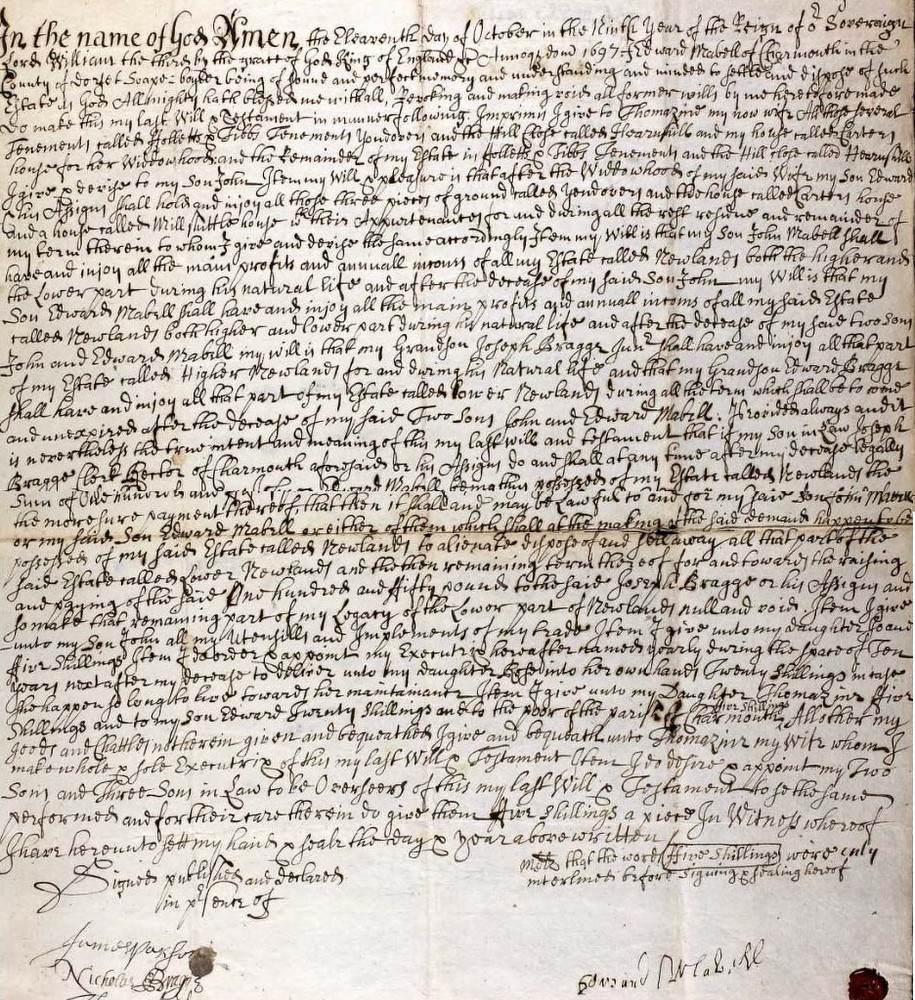 In the name of God Amen the Eleaventh day of October in the Ninth Year of the Reign of or Sovereign
Lord William the third by the grace of God King of England &c Annoq dom 1697 I Edward Mabell of Charmouth in the
County of Dorset Soape-boyler being of sound and perfect memory and understanding and minded to settle and dispose of such
Estate as God Allmighty hath blessed me withall, Revoking and making void all former wills by me heretofore made
Do make this my last Will & Testament in manner following. Imprimis I give to Thomazine my now wife All those severall
Tenements called ffolletts & Tibbs Tenements Yondover and the Hill Close called Hearnhills and my house called Carters
house for her Widowhood and the Remainder of my Estate in ffolletts & Tibbs Tenements and the Hill close called Hearnhills
I give & devise to my Son John Item my Will & pleasure is that after the Widowhood of my said Wife my Son Edward
& his Assigns shall hold and injoy all those three pieces of ground called Yondovers and the house called Carters house
and a house called Millsuttle house with their Appurtenances for and during all the rest residue and remainder of
my term therein to whom I give and devise the same accordingly Item my Will is that my Son John Mabell shall
have and injoy all the main profits and annuall incoms of all my Estate called Newlands both the higher and
the Lower part during his natural life and after the decease of my said Son John my Will is that my
Son Edward Mabell shall have and injoy all the main profits and annuall incoms of all my said Estate
called Newlands both higher and lower part during his natural life and after the decease of my said two Sons
John and Edward Mabell my will is that my Grandson Joseph Bragge Junr shall have and injoy all that part
of my Estate called Higher Newlands for and during his Natural life and that my Grandson Edward Bragge
shall have and injoy all that part of my Estate called Lower Newlands during all the term which shall be to come
and unexpired after the decease of my said Two Sons John and Edward Mabell. Provided always and it
is nevertheless the true intent and meaning of this my last will and testament that if my Son in Law Joseph
Bragge Clerk Rector of Charmouth aforesaid or his Assigns do and shall at any time after my decease legally
Sum of One hundred and Mabell being then possessed of my Estate called Newlands the
the more sure payment thereof, that then it shall and may be Lawful to and for my said Son John Mabell
or my said Son Edward Mabell or either of them which shall at the making of the said demand happen to be
possessed of my said Estate called Newlands to alienate dispose of and sell away all that part of the
said Estate called Lower Newlands and the then remaining term thereof for and towards the raising
and paying of the said One hundred and ffifty pounds to the said Joseph Bragge or his Assigns and
so make that remaining part of my Legacy of the Lower part of Newlands null and void. Item I give
unto my Son John all my Utensills and Implements of my trade Item I give unto my daughter Joane
ffive Shillings Item I do order & appoint my Executrix hereafter named yearly during the space of Ten
years next after my decease to deliver unto my daughter into her own hands Twenty Shillings in case
she happen so long to live towards her maintainance Item I give unto my Daughter Thomazine ffive
Shillings and to my Son Edward Twenty Shillings and to the poor of the parish of Charmouth ffive Shillings All other my
goods and Chattles not herein given and bequeathed I give and bequeath unto Thomazine my Wife whom I
make whole & sole Executrix of this my last Will & Testament Item I do desire & appoint my Two
Sons and Three Sons in Law to be Overseers of this my last Will & Testament to se the same
performed and for their care therein do give them ffive Shillings a piece In Witness whereof
I have hereunto sett my hand & seale the day & year above written
Signed published and declared
in presence of
Md that the words ffive Shillings were only
interlined before Signing & sealing hereof
James Parson
Nicholas Bragge
Edward Mabell